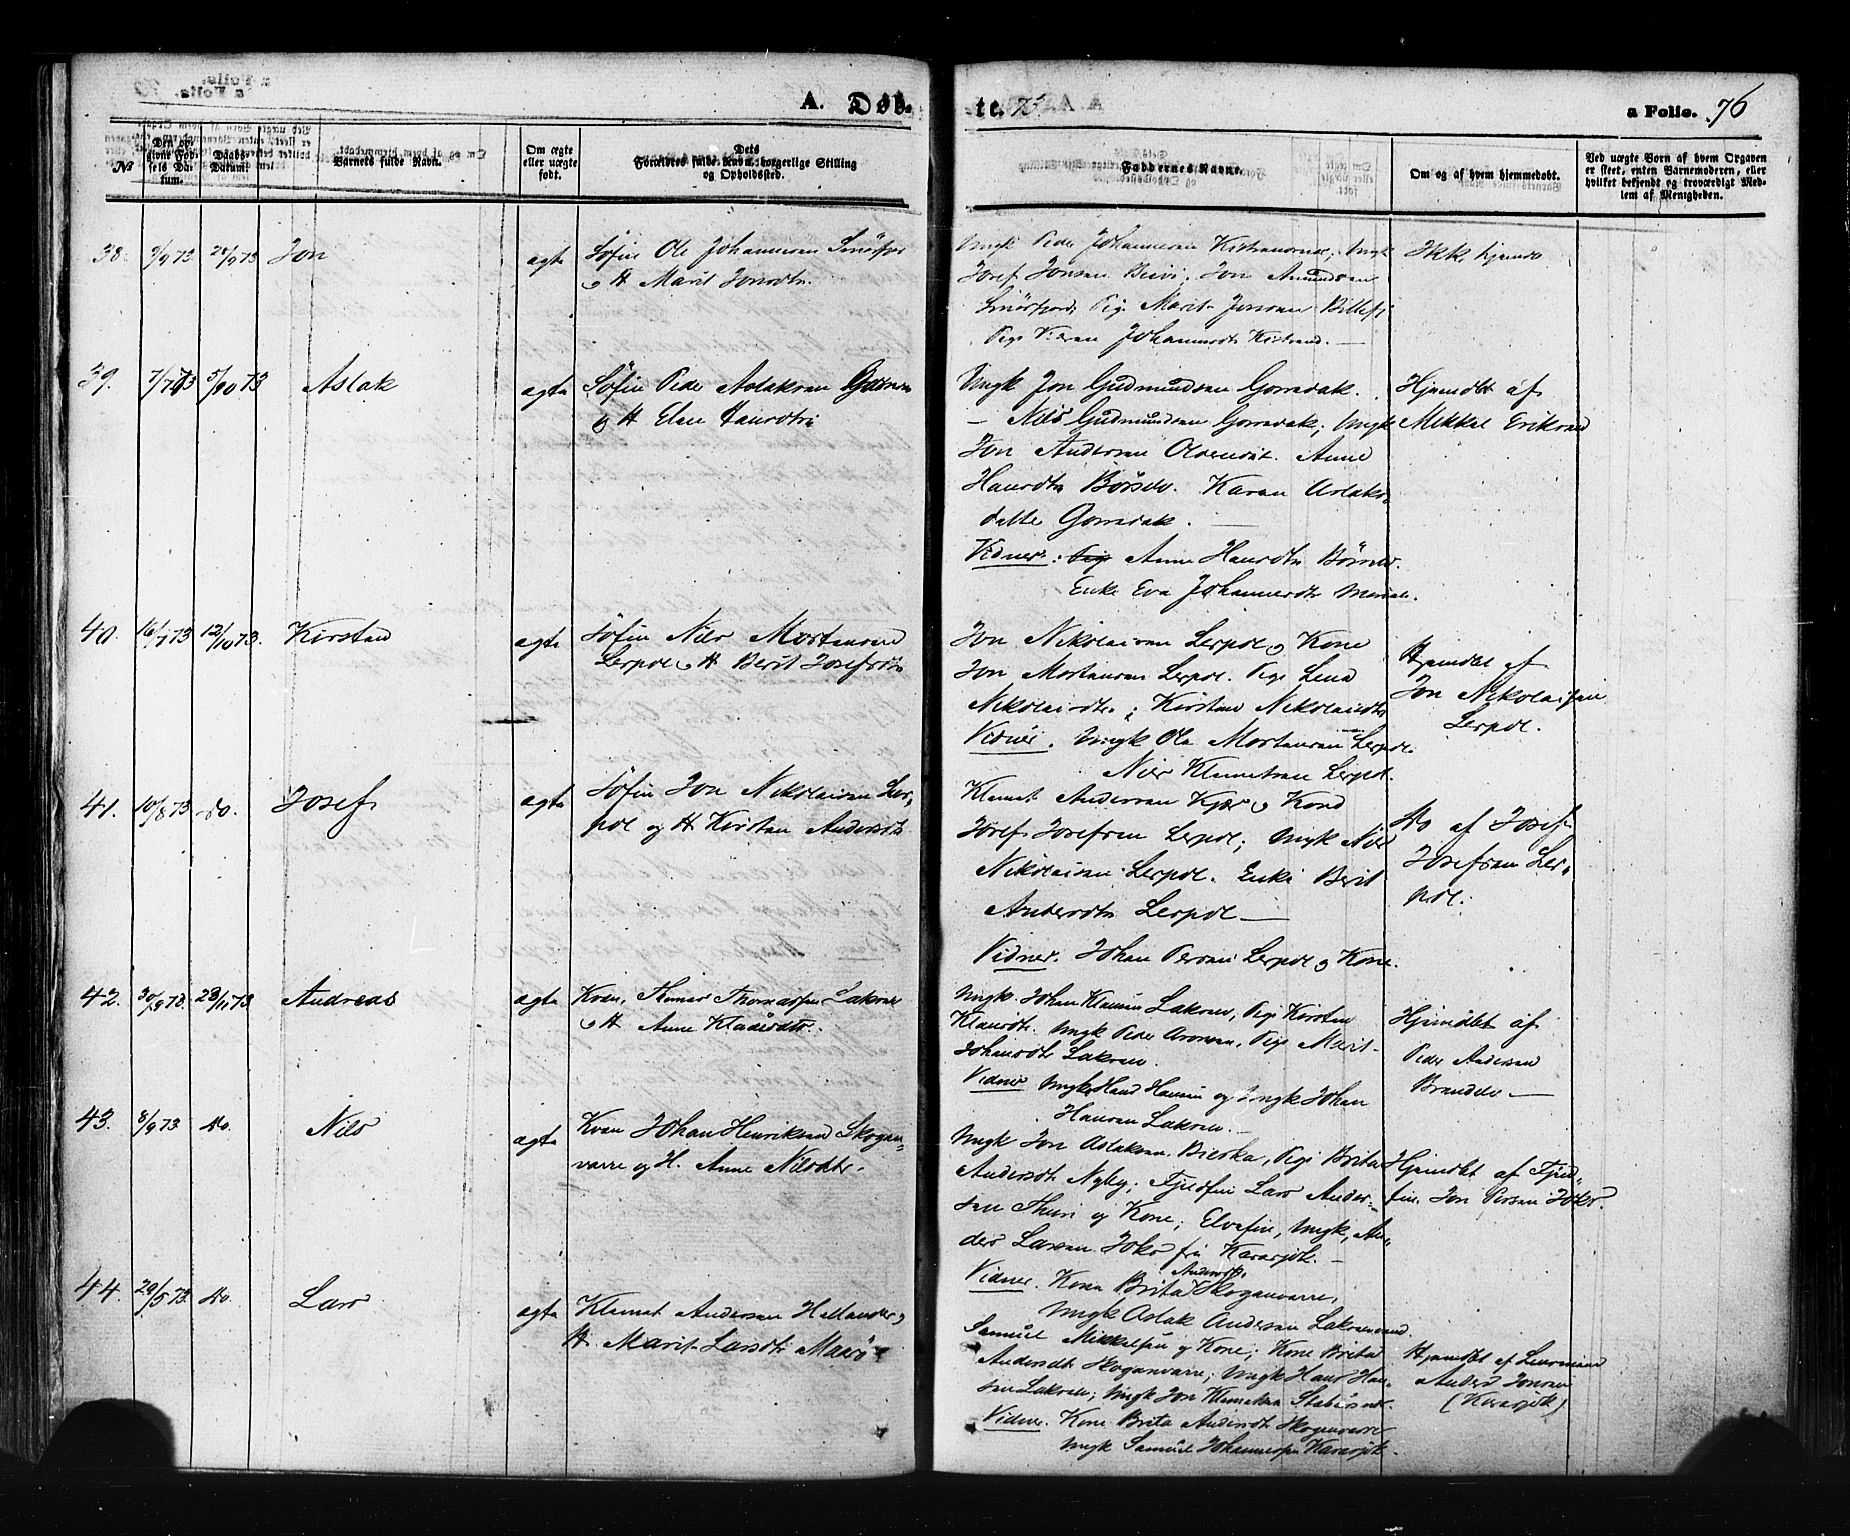 A. Døb=
te. 73
a Folio. 76
No
Den op-
givne Fød-
sels Da-
tum.
Daabs-
Datum.
Barnets fulde Navn.
Om ægte
eller uægte
født.
Dets
Forældres fulde Navn, borgerlige Stilling
og Opholdssted.
Faddernes Navne.
Om og af hvem hjemmedøbt.
Ved uægte Born af hvem Opgaven
er skeet, enten Barnemoderen, eller
hvilket bekjendt og troværdigt Med-
lem af Menigheden.
38. 9/9 73 28/9 73 Jon
ægte
Søfin Ole Johannesen Smörfjor
og H Marit Jonsdtr.
Ungk Peder Johannesen Kistrand; Ungk
Josef Jonsen; Jon Amundsen
Smörfjord; Pige Marit Jonsen Billefj
Pige Johannesdtr Kistrand. —
Ikke hjemdo
39. 7/7 73 5/10 73 Aslak
ægte
Søfin Peder Aslaksen
og H Elen Hansdtr
Ungk Jon Gudmundsen Goradak.
— Nils Gudmundsen Goradak; Ungk
Jon Andersen Anne
Hansdtr Börselv. Karen Aslaks
datte Goradak. —
Vidner: Anne Hansdtr
Enke Eva Johannesdtr
Hjemdbt af
Mikkel Eriksen
40. 16/7 73 12/10 73. Kirsten
ægte
Søfin Nils Mortensen
Lerpol og H Berit Josefsdtr
Jon Nikolaisen Lerpol og Kone
Jon Mortensen Lerpol. Pige Lena
Nikolaisdtr; Kirsten Nikolaisdtr
Vidner. Ungk Ole Mortensen Lerpol.
Nils Klemetsen Lerpol.
Hjemdbt af
Jon Nikolaisen
Lerpol.
41. 10/8 73 do. Josef
ægte
Søfin Jon Nikolaisen Ler-
pol og H Kirsten Andersdtr
Klemet Andersen Kjær og Kone
Josef Josefsen Lerpol; Ungk Nils
Nikolaisen Lerpol. Enke Berit
Andersdtr Lerpol —
Vidner. Johan Persen Lerpol og Kone.
Do af Josef
Josefsen Ler-
pol.
42. 30/9 73. 23/11 73 Andreas
ægte
Kvæn, Thomas Thomassen Lakselv
og H Anne Klausdtr.
Ungk. Johan Klausen Lakselv, Pige Kirsten
Klausdtr. Ungk Peder Aronsen, Pige Marit
Johansdtr Lakselv.
Vidner Ungk Hans Hansen og Ungk Johan
Hansen Lakselv. —
Hjemdbt af
Peder Andersen
Brendelv —
43. 8/9 73 do. Nils
ægte
Kvæn Johan Henriksen Skogan-
varre og H. Anne Nilsdtr.
Ungk Jon Aslaksen Bieska, Pige Brita
Andersdtr Nyby; Fjeldfin Lars Ander-
sen Thuri og Kone; Elvefin, Ungk, An-
ders Larsen Joks fra Karasjok. —
Vidner. Kone Brita Andersdtr Skoganvarre,
Ungk Aslak Andersen
Hjemdbt af Fjeld-
fin. Jon Persen Joks.
44. 29/5 73. do. Lars
ægte
Klemet Andersen Hellander og
H Marit Larsdtr Masø
Samuel Mikkelsen og Kone; Kone Brita
Andersdt Skoganvarre; Ungk Hans Han-
sen Lakselv; Ungk Jon Klemetsen
Vidner. Kone Brita Andersdt Skoganvarre
Ungk Samuel Johannesen Karasjok.
Hjemdbt af
Anders Jonsen
(Karasjok)